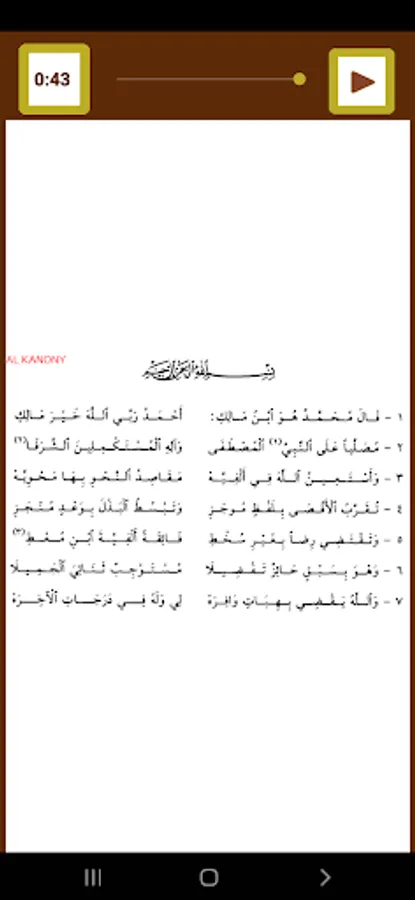 0:43
AL KANONY
بِسْمِ اللَّهِ الرَّحْمَنِ الرَّحِيمِ
١ - قَالَ مُحَمَّدٌ هُوَ ٱبْنُ مَالِكِ: أَحْمَدُ رَبِّي ٱللَّهَ خَيْرَ مَالِكِ
٢ - مُصَلِّياً عَلَى ٱلنَّبِيِّ(١) ٱلْمُصْطَفَى وَآلِهِ ٱلْمُسْتَكْمِلِينَ ٱلشَّرَفَا(٢)
٣ - وَأَسْتَعِينُ ٱللَّهَ فِي أَلْفِيَّهْ مَقَاصِدُ ٱلنَّحْوِ بِهَا مَحْوِيَّهْ
٤ - تُقَرِّبُ ٱلْأَقْصَى بِلَفْظٍ مُوجَزِ وَتَبْسُطُ ٱلْبَذْلَ بِوَعْدٍ مُنْجَزِ
٥ - وَتَقْتَضِي رِضاً بِغَيْرِ سُخْطِ فَائِقَةً أَلْفِيَّةَ ٱبْنِ مُعْطِ(٣)
٦ - وَهْوَ بِسَبْقٍ حَائِزٌ تَفْضِيلَا مُسْتَوْجِبٌ ثَنَائِيَ ٱلْجَمِيلَا
٧ - وَٱللَّهُ يَقْضِي بِهِبَاتٍ وَافِرَهْ لِي وَلَهُ فِي دَرَجَاتِ ٱلْآخِرَهْ